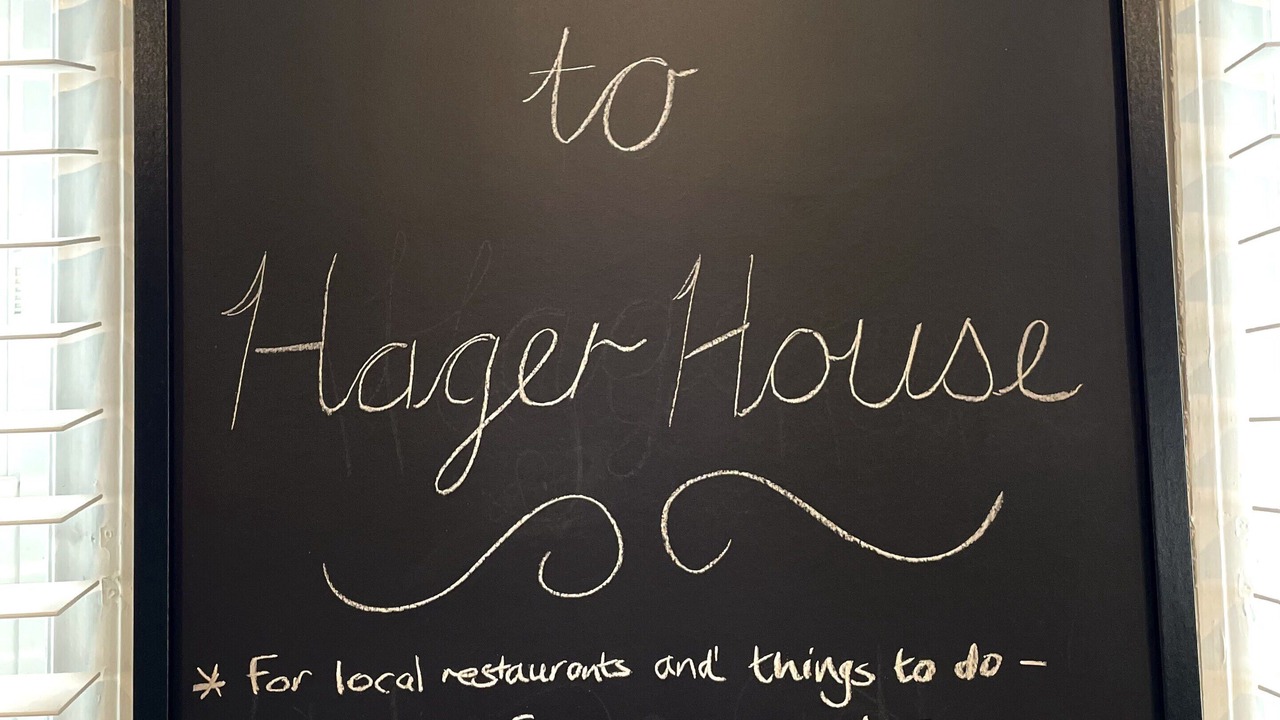 to
Hager House
* For local restaurants and things to do -